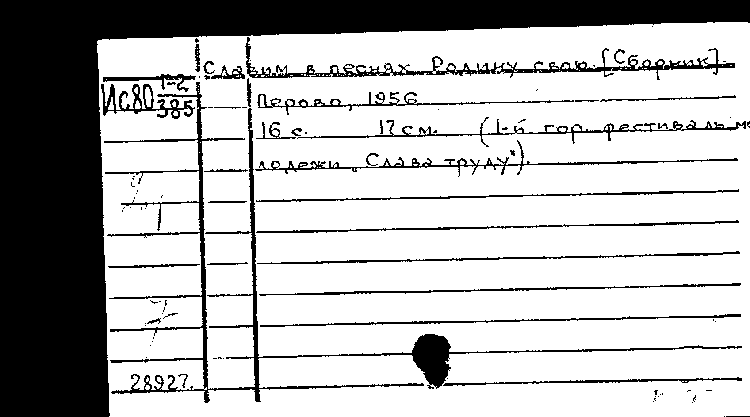 Славим в песнях Родину свою. [Сборник].
Ис80 Г-2/385
Перово, 1956
16 с. 17 см. (1-й гор. фестиваль мо
лодежи „Слава труду").
7
28927.